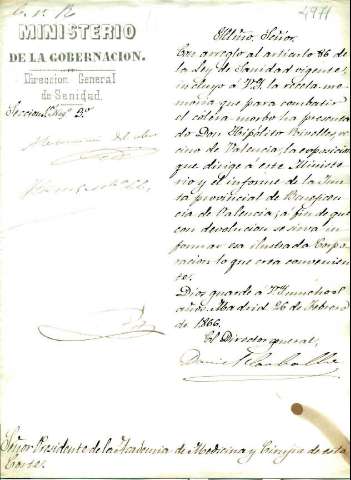 4971
MINISTERIO
DE LA GOBERNACION.
Direccion General
de Sanidad.
Seccion Neg.º 2.º
Illmo. Señor.
Con arreglo al articulo 86 de
la Ley de Sanidad vigente,
incluyo a V.I. la receta me-
moria que para combatir
el cólera morbo ha presenta-
do Don Hipólito ve-
cino de Valencia, la exposicion
que dirige á este Ministe-
rio y el informe de la Jun-
ta provincial de Beneficen-
cia de Valencia, a fin de que
con devolucion se sirva in-
formar esa ilustrada Corpo-
racion lo que crea convenien-
te.
Dios guarde á V.I. muchos
años. Madrid 26 de Febrero
de 1866.
El Director general,
Señor Presidente de la Academia de Medicina y Cirujia de esta
Corte.